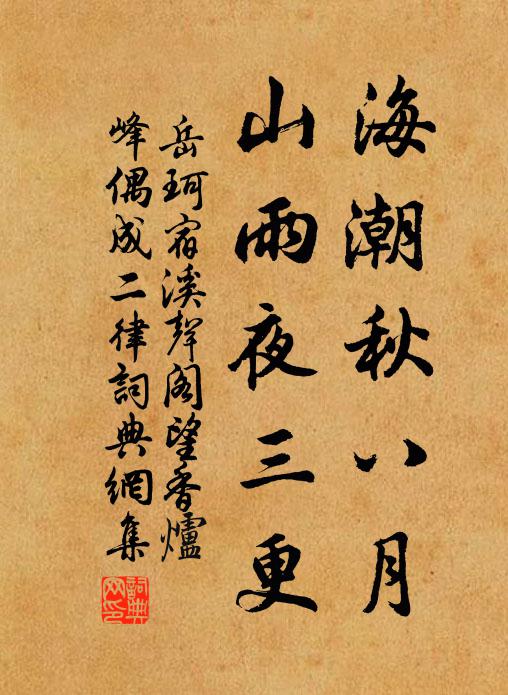 海潮秋八月
山雨夜三更
岳珂宿溪聲閣望香爐
峰偶成二律詞典網集
詞典
网印